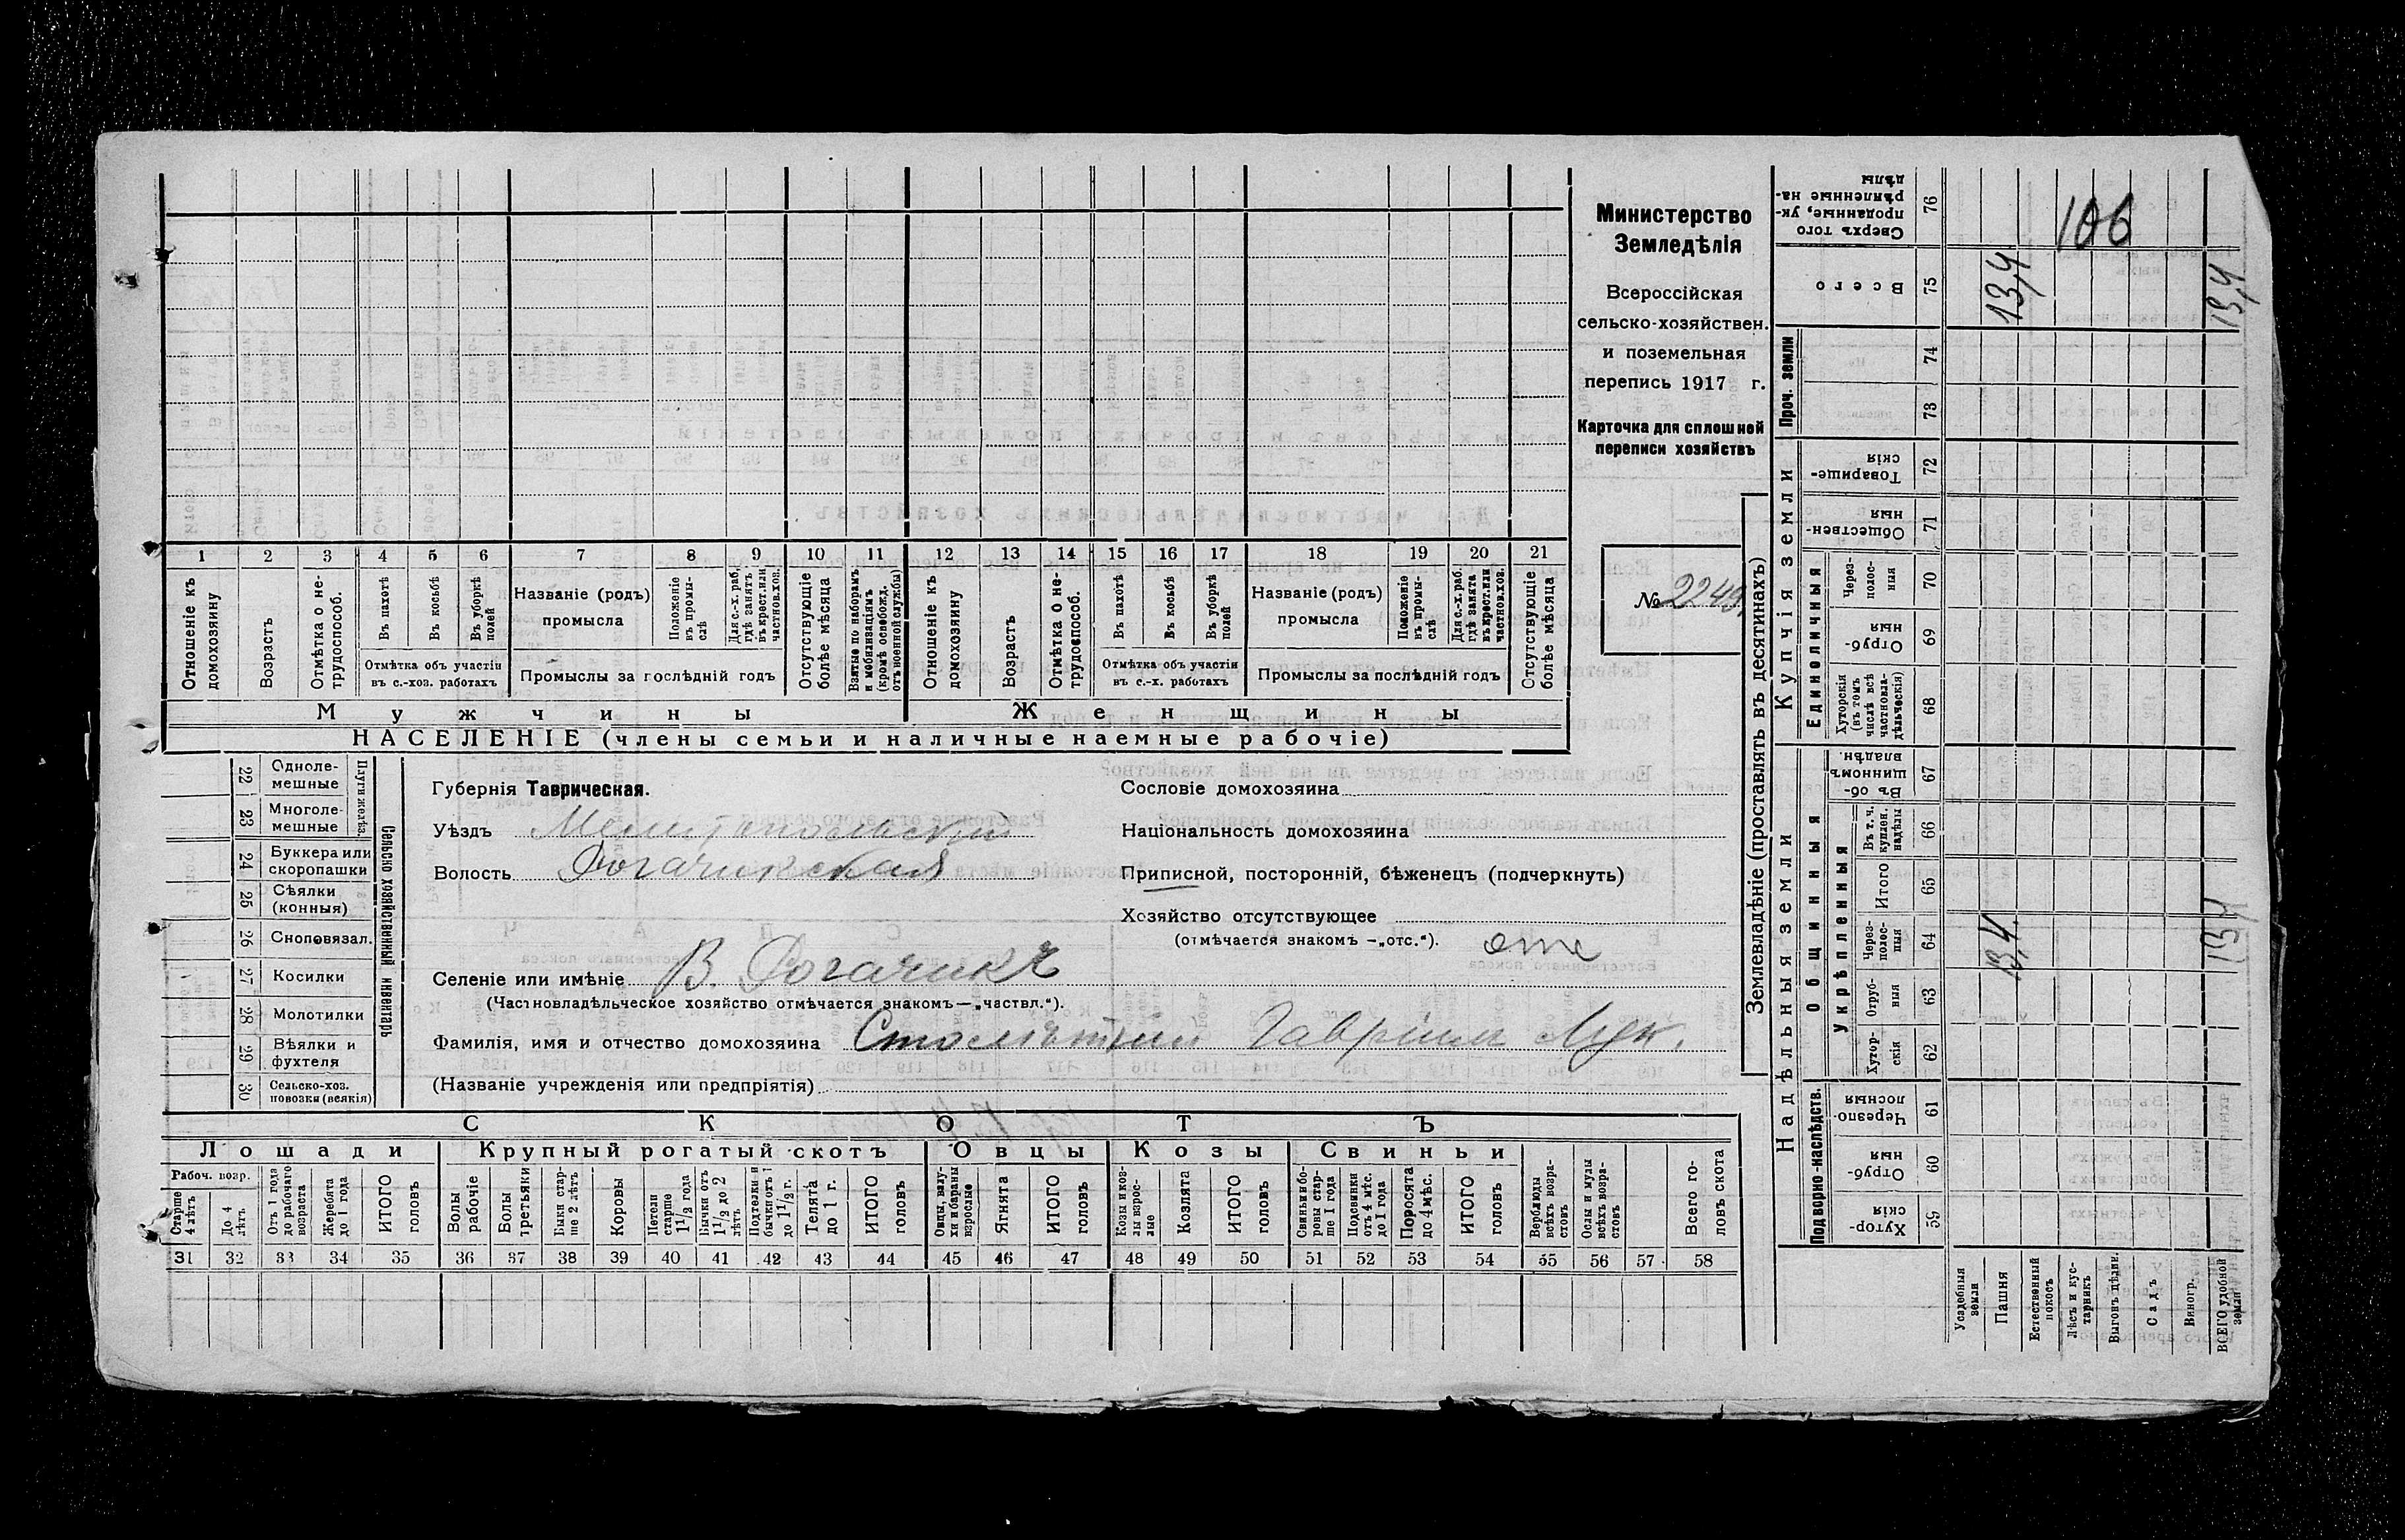 Министерство
Земледѣлія
Всероссійская
сельско-хозяйствен.
и поземельная
перепись 1917 г.
Карточка для сплошной
переписи хозяйствъ
№ 2249
1 2 3 4 5 6 7 8 9 10 11 12 13 14 15 16 17 18 19 20 21
Отношеніе къ домохозяину
Возрастъ
Отмѣтка о не-трудоспособ.
Въ пахотѣ
Въ косьбѣ
Въ уборкѣ полей
Отмѣтка объ участіи въ с.-хоз. работахъ
Названіе (родъ) промысла
Положеніе въ промы-слѣ
Для с.-х. раб. гдѣ занятъ въ крест. или частнов. хоз.
Промыслы за послѣдній годъ
Отсутствующіе болѣе мѣсяца
Взятые по наборамъ и мобилизаціямъ (кромѣ освобожд. отъ военной службы)
Отношеніе къ домохозяину
Возрастъ
Отмѣтка о не-трудоспособ.
Въ пахотѣ
Въ косьбѣ
Въ уборкѣ полей
Отмѣтка объ участіи въ с.-х. работахъ
Названіе (родъ) промысла
Положеніе въ промы-слѣ
Для с.-х. раб. гдѣ занята въ крест. или частнов. хоз.
Промыслы за послѣдній годъ
Отсутствующіе болѣе мѣсяца
Мужчины
Женщины
НАСЕЛЕНІЕ (члены семьи и наличные наемные рабочіе)
22 Одноле-мешные
23 Многоле-мешные
Плуги желѣз.
24 Буккера или скоропашки
25 Сѣялки (конныя)
26 Сноповязал.
27 Косилки
28 Молотилки
29 Вѣялки и фухтеля
30 Сельско-хоз. повозки (всякія)
Сельско хозяйственный инвентарь
Губернія Таврическая.
Уѣздъ Мелитопольскій
Волость Рогачикская
Селеніе или имѣніе В. Рогачикъ
(Частновладѣльческое хозяйство отмѣчается знакомъ—„частвл.“).
Фамилія, имя и отчество домохозяина Гавріилъ Лук.
(Названіе учрежденія или предпріятія)
Сословіе домохозяина
Національность домохозяина
Приписной, посторонній, бѣженецъ (подчеркнуть)
Хозяйство отсутствующее
(отмѣчается знакомъ —„отс.“). отс
СКОТЪ
Лошади Крупный рогатый скотъ Овцы Козы Свиньи
Рабоч. возр.
Старше 4 лѣтъ
До 4 лѣтъ
Отъ 1 года до рабочаго возраста
Жеребята до 1 года
ИТОГО головъ
Волы рабочіе
Волы третьяки
Быки стар-ше 2 лѣтъ
Коровы
Нетели старше 1 1/2 года
Бычки отъ 1 1/2 до 2 лѣтъ
Подтелки и бычки отъ 1 до 1 1/2 г.
Телята до 1 г.
ИТОГО головъ
Овцы, валу-хи и бараны взрослые
Ягнята
ИТОГО головъ
Козы и коз-лы взрос-лые
Козлята
ИТОГО головъ
Свиньи и бо-ровы стар-ше 1 года
Подсвинки отъ 4 мѣс. до 1 года
Поросята до 4 мѣс.
ИТОГО головъ
Верблюды всѣхъ возра-стовъ
Ослы и мулы всѣхъ возра-стовъ
Всего го-ловъ скота
31 32 33 34 35 36 37 38 39 40 41 42 43 44 45 46 47 48 49 50 51 52 53 54 55 56 57 58
Землевладѣніе (проставлять въ десятинахъ)
Надѣльныя земли
Купчія земли
Проч. земли
Подворно-наслѣдств.
Общинныя
Укрѣпленныя
Единоличныя
Хутор-скія 59
Отруб-ныя 60
Черезпо-лосныя 61
Хутор-скія 62
Отруб-ныя 63
Через-полос-ныя 64
Итого 65
Въ т. ч. куплен. надѣлы 66
Въ об-щинномъ владѣн. 67
Хуторскія (въ томъ числѣ всѣ частновла-дѣльческія) 68
Отруб-ныя 69
Через-полос-ныя 70
Обществен-ныя 71
Товарище-скія 72
73
74
Всего 75
Сверхъ того проданные, ук-рѣпленные на-дѣлы 76
Усадебная земля
Пашня
Естественный покосъ
Лѣсъ и кус-тарникъ
Выгонъ цѣлин.
Садъ
Виногр.
ВСЕГО удобной земли
13,4
13,4
13,4
13,4
106